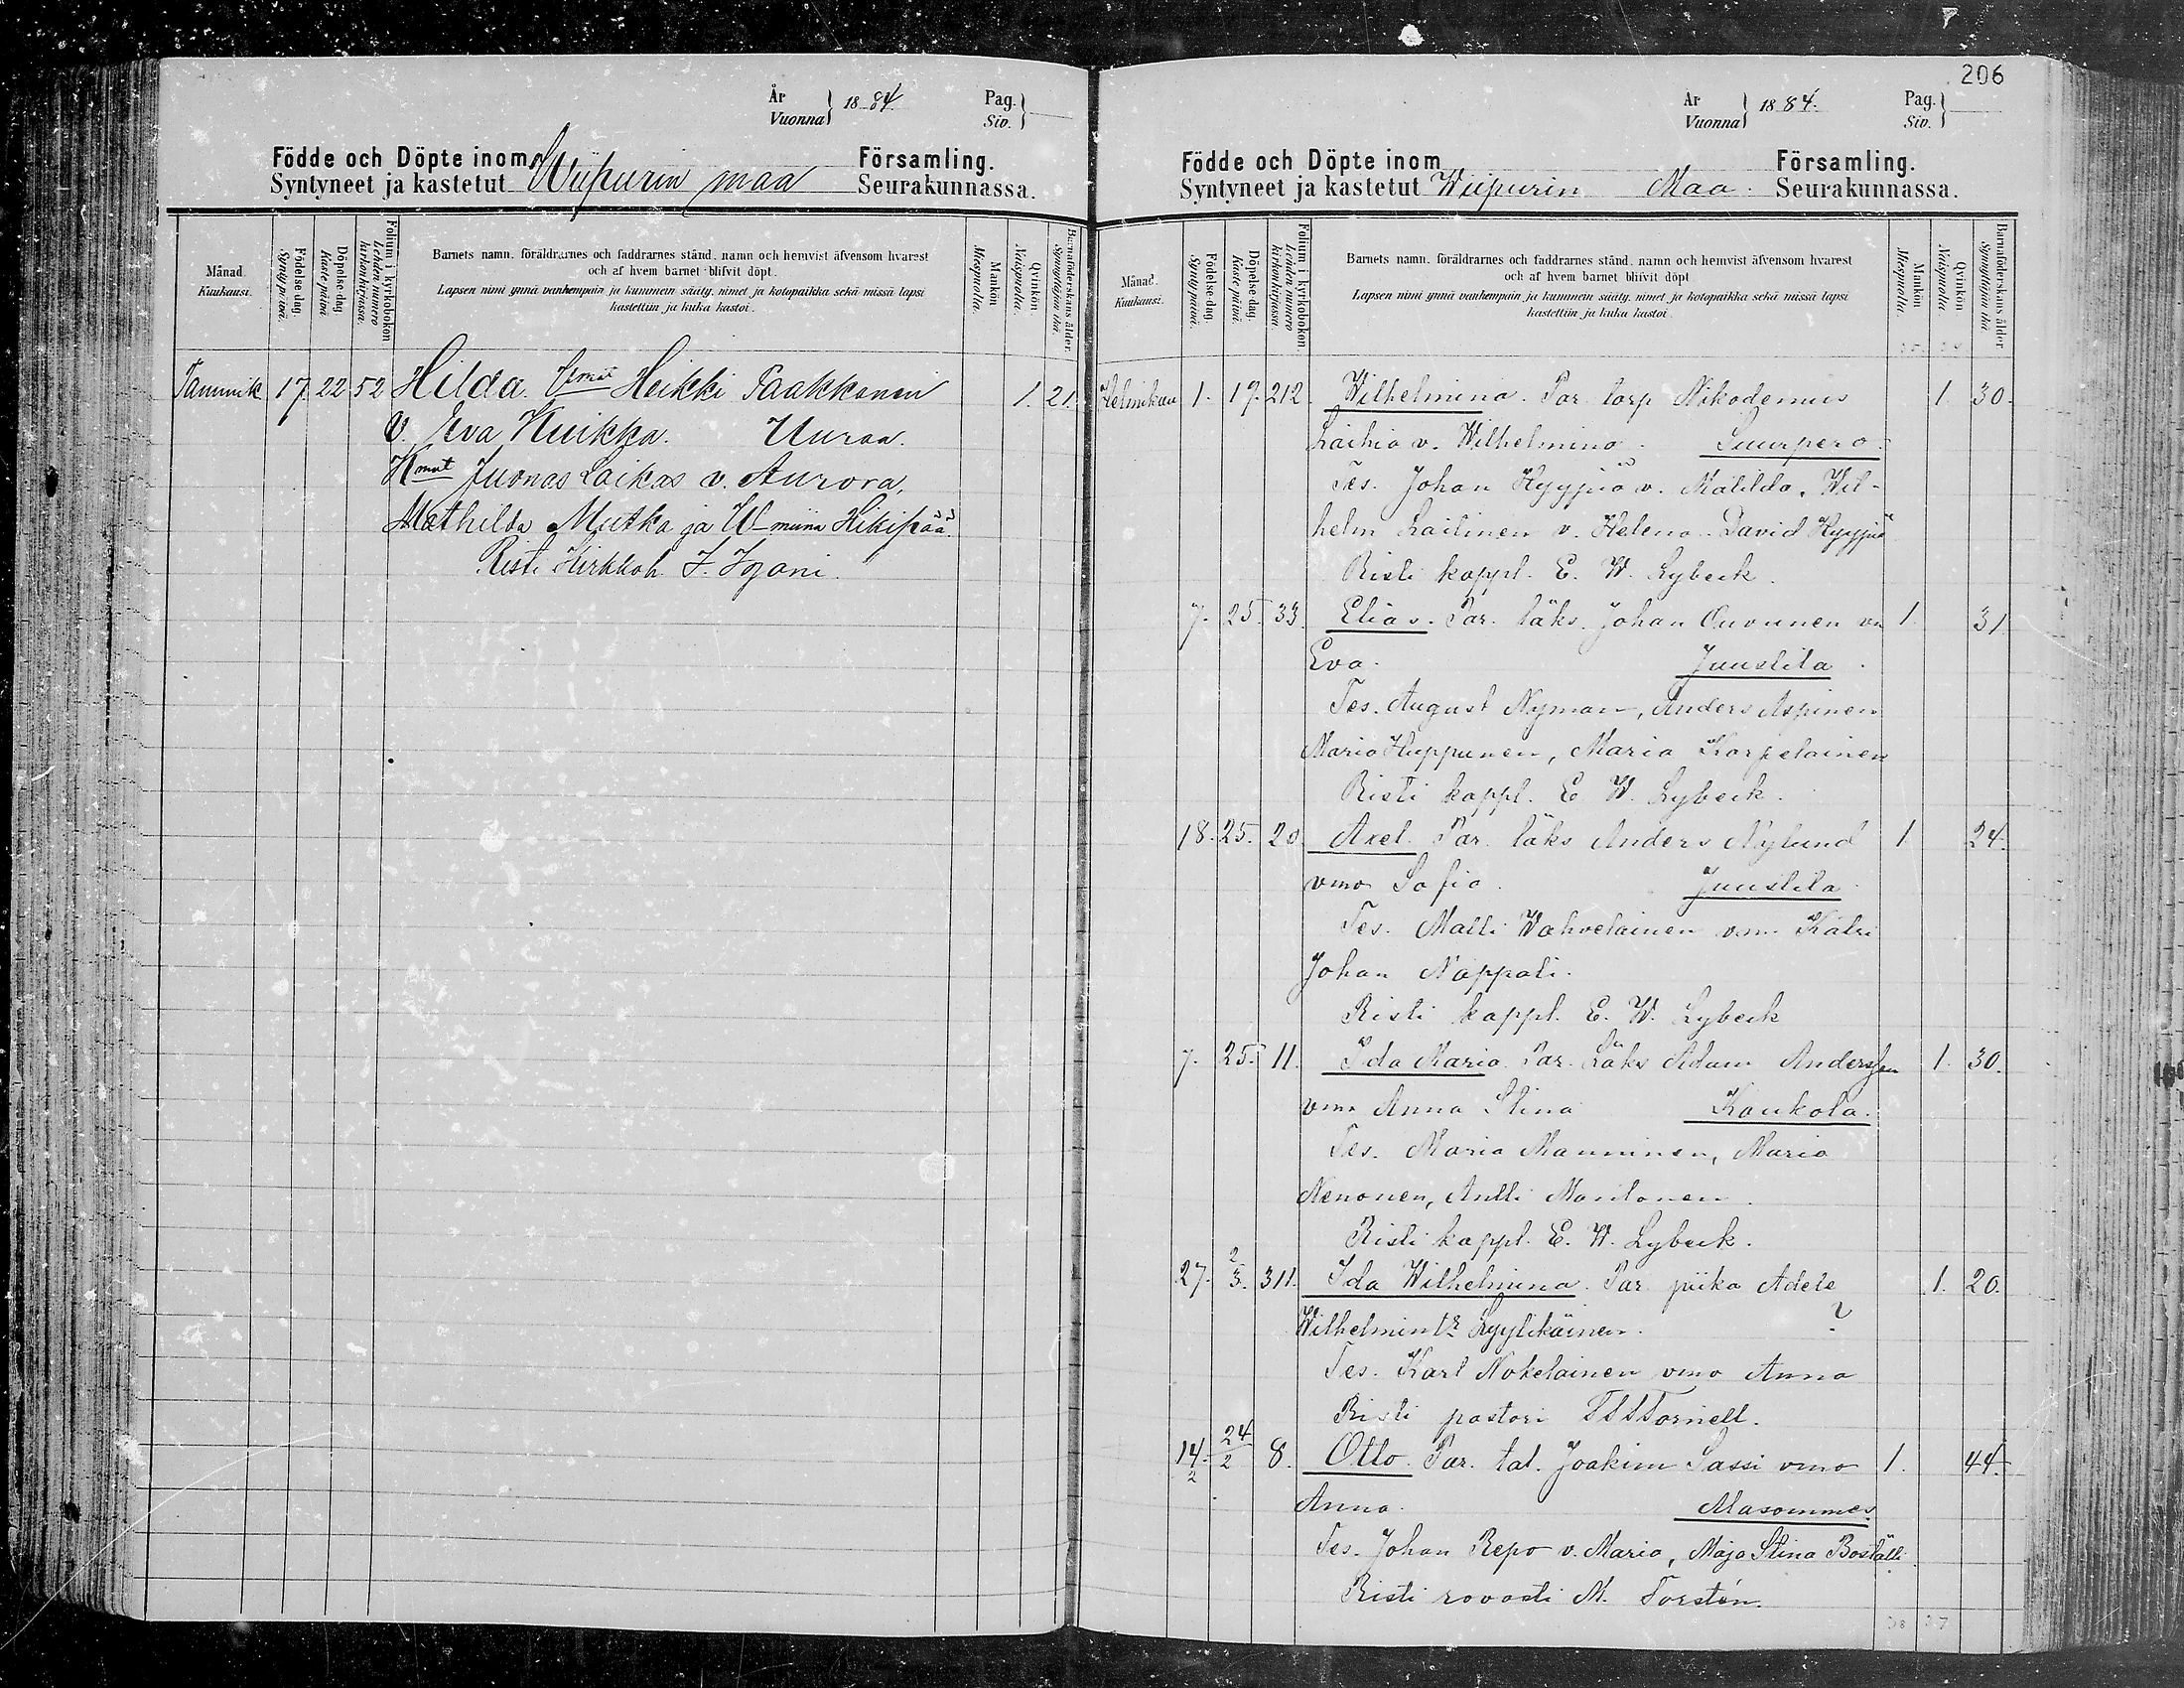 År
Vuonna } 1884.
Pag.
Siv. }
Födde och Döpte inom Församling.
Syntyneet ja kastetut Wiipurin maa Seurakunnassa.
Månad.
Kuukausi.
Födelse dag.
Synty päivä.
Döpelse dag
Kaste päivä
Folium i kyrkobokon
Lehden numero kirkonkirjassa.
Barnets namn, föräldrarnes och faddrarnes stånd, namn och hemvist äfvensom hvarest
och af hvem barnet blifvit döpt.
Lapsen nimi ynnä vanhempain ja kummein sääty, nimet ja kotopaikka sekä missä lapsi
kastettiin ja kuka kastoi.
Mankön
Miespuolta.
Qvinkön
Naispuolta.
Barnaföderskans ålder.
Synnyttäjän ikä.
Tammik 17 22 52 Hilda. Heikki Paakkonen 1. 21.
v. Eva Kuikka. Uuraa.
Juonas Laikas v. Aurora,
Mathilda Mutka ja W-miina Hikipää.
Risti Kirkkoh.
206
År
Vuonna } 1884.
Pag.
Siv. }
Födde och Döpte inom Församling.
Syntyneet ja kastetut Wiipurin Maa. Seurakunnassa.
Månad.
Kuukausi.
Födelse-dag.
Synty päivä.
Döpelse dag.
Kaste päivä.
Folium i kyrkobokon.
Lehden numero kirkonkirjassa.
Barnets namn, föräldrarnes och faddrarnes stånd, namn och hemvist äfvensom hvarest
och af hvem barnet blifvit döpt
Lapsen nimi ynnä vanhempain ja kummein sääty, nimet ja kotopaikka sekä missä lapsi
kastettiin ja kuka kastoi.
Mankön
Miespuolta.
Qvinkön
Naispuolta
Barnaföderskans ålder
Synnyttäjän ikä
Helmikuu 1. 17. 212 Wilhelmina. Par. torp Nikodemus 1 30.
Laihia v. Wilhelmina. Suurpero.
Tes. Johan Hyyjiä v. Matilda, Wil-
helm Laitinen v. Helena. David Hyyjiä
Risti kappl. E. W. Lybeck.
7. 25. 33. Elias. Par. läks. Johan Ouvunen vm 1 31.
Eva. Juustila.
Tes. August Nyman, Anders Aspinen
Maria Huppunen, Maria Karpelainen
Risti kappl. E. W. Lybeck.
18. 25. 20. Axel. Par. läks Anders Nylund 1 24.
vmo Sofia. Juustila.
Tes. Matti Wahvelainen vmo Katri
Johan Nappali.
Risti kappl. E. W. Lybeck
7. 25. 11. Ida Maria. Par. Läks Adam Anderssen 1. 30.
vmo Anna Stina Kaukola.
Tes. Maria Manninen, Maria
Nenonen, Antti Monlonen
Risti kappl. E. W. Lybeck.
27. 2/3. 311. Ida Wilhelmina. Par. piika Adele 1. 20.
Wilhelmintr Lyylikäinen. ?
Tes. Karl Nokelainen vmo Anna
Risti pastori Tornell.
14/2. 24/2 8. Otto. Par. tal. Joakim Sassi vmo 1. 44.
Anna. Alasommee.
Tes. Johan Repo v. Maria, Maja Stina Boställi.
Risti rovasti M. Forstén.